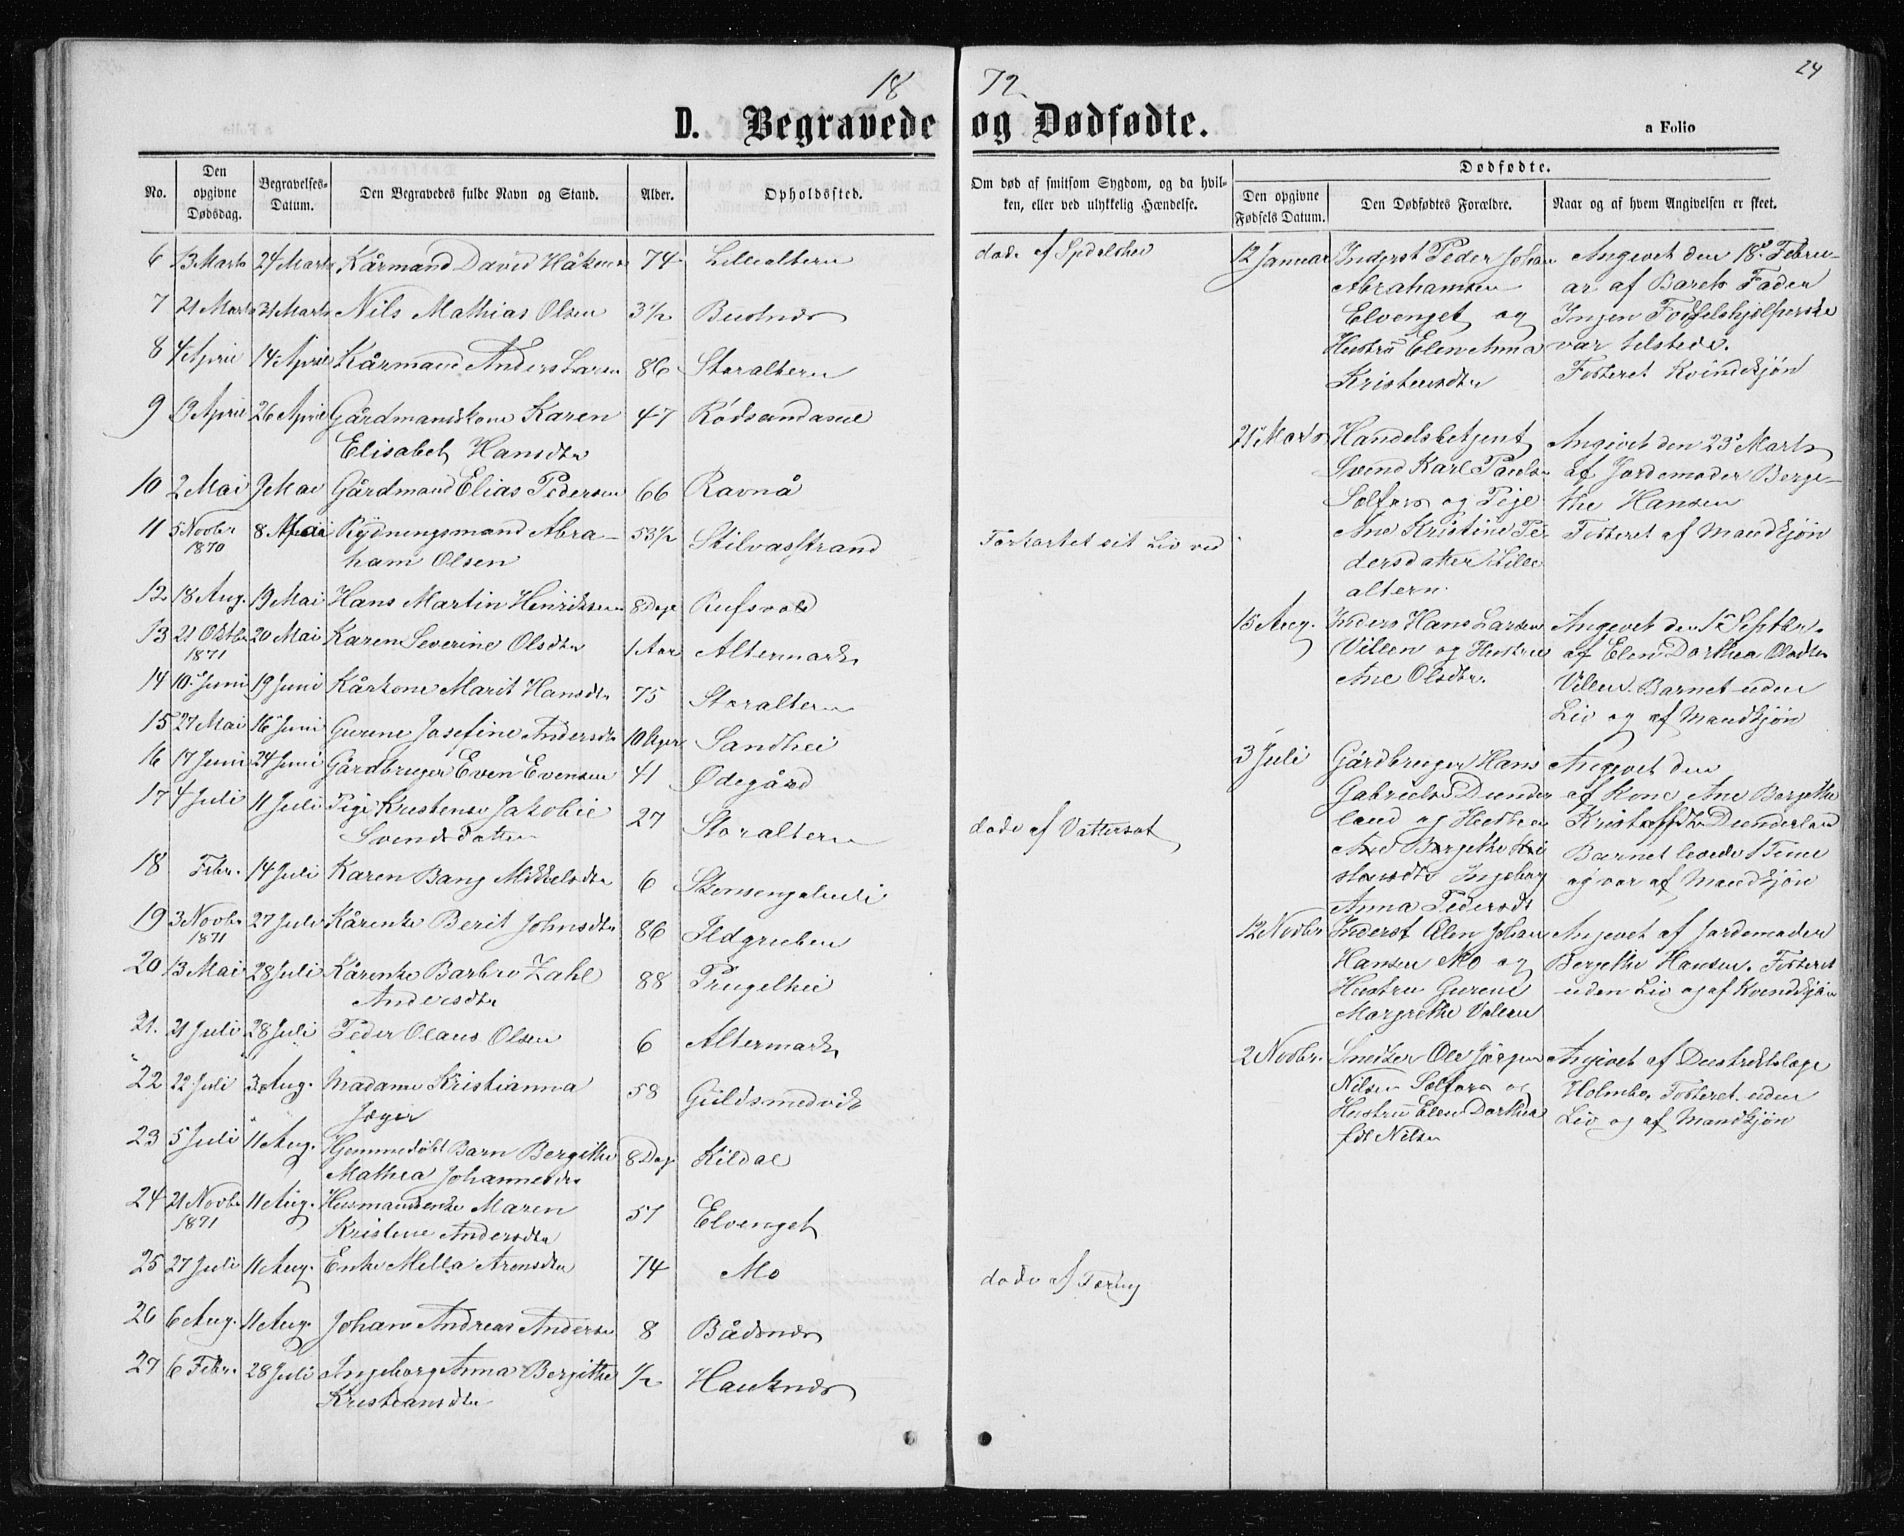 18 72
24
D. Begravede og Dødfødte.
a Folio
No.
Den opgivne Dødsdag.
Begravelses-Datum.
Den Begravedes fulde Navn og Stand.
Alder.
Opholdssted.
Om død af smitsom Sygdom, og da hvilken, eller ved ulykkelig Hændelse.
Dødfødte.
Den opgivne Fødsels Datum.
Den Dødfødtes Forældre.
Naar og af hvem Angivelsen er skeet.
6 13 Marts 24 Marts Kårmand David Håkens 74 Lillealteren døde af Spedalskhei
7 21 Marts 31 Marts Nils Mathias Olsen 3½ Bustnæs
8 4 April 14 April Kårmand Anders Larsen 86 Storalteren
9 9 April 26 April Gårdmandskone Karen 47 Rødsandaasen
Elisabet Hansdtr
10 2 Mai 9 Mai Gårdmand Elias Pedersen 66 Ravnå
11 5 Novbr 8 Mai Rydningsmand Abra- 53½ Stilvasstrand Forkortet sit Liv ved
1870 ham Olsen
12 18 Aug. 19 Mai Hans Martin Henriksen 8 Dage Rufsvold
13 21 Oktbr 20 Mai Karen Severine Olsdtr 1 Aar Altermark
1871
14 10 Juni 19 Juni Kårkone Marit Hansdtr 75 Storalteren
15 27 Mai 16 Juni Gurine Josefine Andersdtr 10 Uger Sandhei
16 17 Juni 24 Juni Gårdbruger Even Evensen 41 Ødegård
17 4 Juli 11 Juli Pige Kristense Jakobie 27 Storalteren døde af Vattersot
Svendsdatter
18 Febr. 14 Juli Karen Bang Mikkelsdtr 6
19 3 Novbr 27 Juli Kårenke Berit Johnsdtr 86 Ildgruben
1871
20 13 Mai 28 Juli Kårenke Barbro Zahl 88
Andersdtr
21. 21 Juli 28 Juli Peder Olaus Olsen 6 Altermark
22 22 Juli 3 Aug. Madame Kristianna 58 Guldsmedvik
Jæger
23 5 Juli 11 Aug. Hjemmedøbt Barn Bergithe 8 Dag Kildal
Mathea Johannesdtr
24 21 Novbr 11 Aug. Husmandsenke Maren 57 Elvenget
1871 Kristine Andersdtr
25 27 Juli 11 Aug. Enke Mella Arensdtr 74 Mo døde af Tæring
26 6 Aug. 11 Aug. Johan Andreas Andersen 8 Bådsnæs
27 6 Febr. 28 Juli Ingeborg Anna Bergithe ½ Hauknæs
Kristiansdtr
12 Januar Inderst Peder Johan Angivet den 18de Febru-
Abrahamsen ar af Barets Fader
Elvenget og Ingen Fødselshjelperske
Hustru Elen Anna var tilstede.
Kristensdtr Fosteret Kvindekjøn
21 Marts Handelsbetjent Angivet den 23de Marts
Svend Karl Paulsen af Jordemoder Berge-
Selfors og Pige the Hansen
Ane Kristine Pe- Fosteret af Mandkjøn
dersdatter Lille
alteren.
15 Aug. Inders Hans Larsen Angivet den 1ste Septbr.
Villen og Hustru af Elen Dorthea Olsdtr
Ane Olsdtr. Villen. Barnet uden
Liv og af Mandkjøn
3 Juli Gårdbruger Hans Angivet den
Gabrielsen Dunder af Kone Ane Bergithe
land og Hustru Kristoffdtr Dunderland
Ane Bergithe Kri Barnet levede 1 Time
stansdtr Ingeborg og var af Mandkjøn
Anna Pedersdt
12 Novbr. Inderst Olen Johan Angivet af Jordemoder
Hansen Mo og Bergethe Hansen. Fosteret
Hustru Gurine uden Liv og af Kvindekjøn
Margrethe Villen
2 Novbr. Smeder Ole Jørgen Angivet af Destriktslæge
Nilsen Selfors og Holmbo. Fosteret uden
Hustru Elen Dorthea Liv og af Mandkjøn
fdt Nilsen